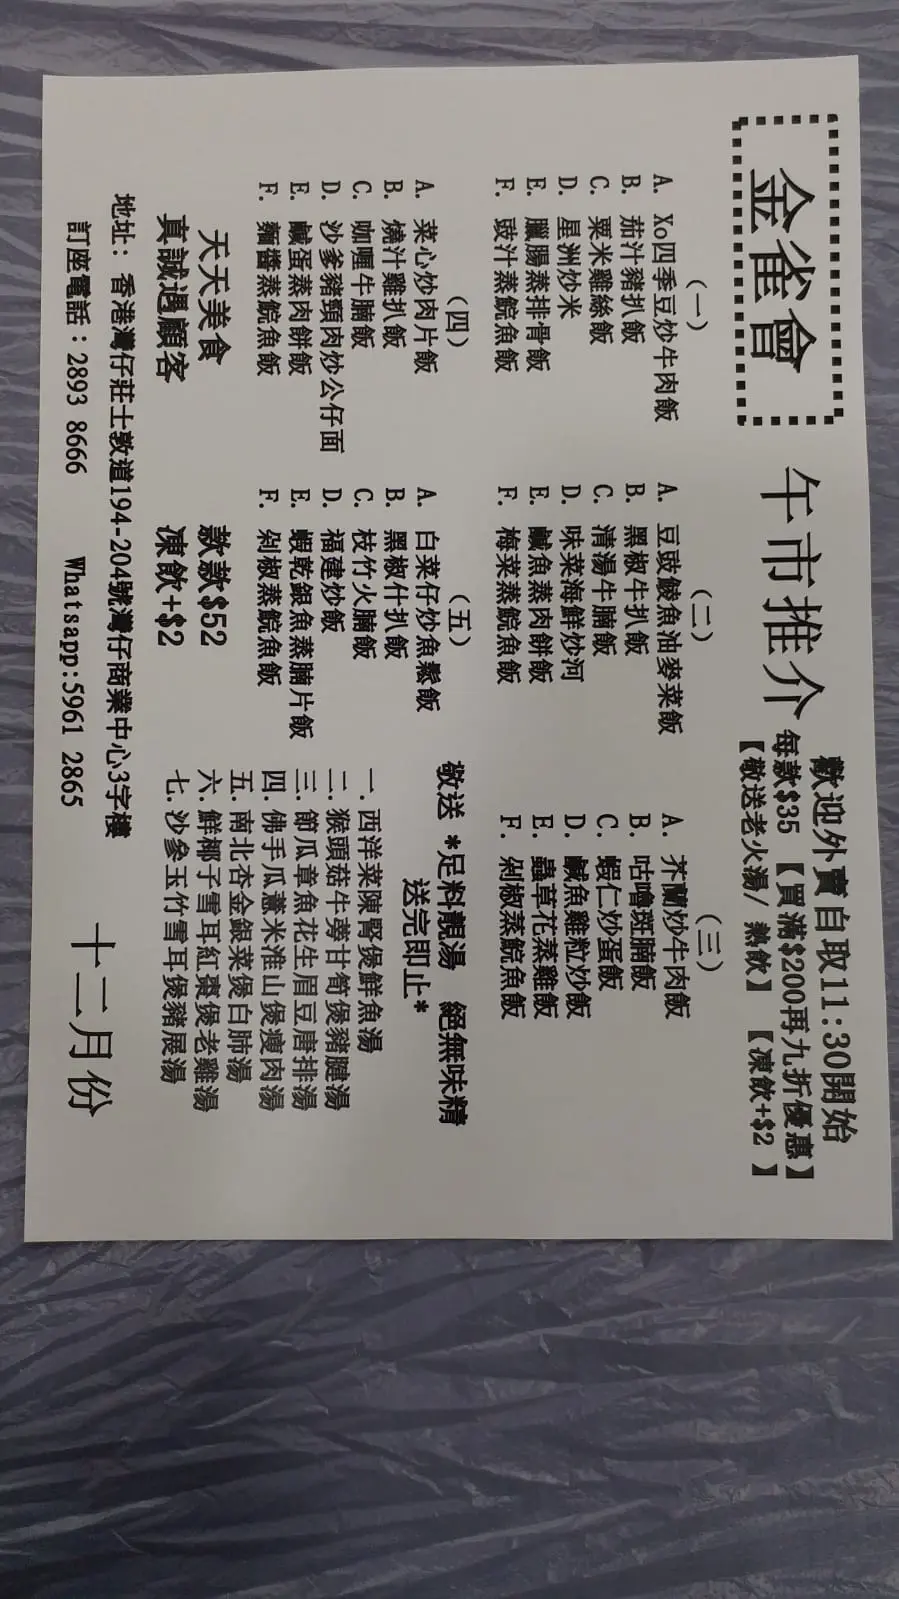 金雀會
午市推介
歡迎外賣自取11:30開始
每款$35 【買滿$200再九折優惠】
【敬送老火湯/ 熱飲】 【凍飲+$2 】
(一)
A. Xo四季豆炒牛肉飯
B. 茄汁豬扒飯
C. 粟米雞絲飯
D. 星洲炒米
E. 臘腸蒸排骨飯
F. 豉汁蒸鯇魚飯
(二)
A. 豆豉鯪魚油麥菜飯
B. 黑椒牛扒飯
C. 清湯牛腩飯
D. 味菜海鮮炒河
E. 鹹魚蒸肉餅飯
F. 梅菜蒸鯇魚飯
(三)
A. 芥蘭炒牛肉飯
B. 咕嚕斑腩飯
C. 蝦仁炒蛋飯
D. 鹹魚雞粒炒飯
E. 蟲草花蒸雞飯
F. 剁椒蒸鯇魚飯
(四)
A. 菜心炒肉片飯
B. 燒汁雞扒飯
C. 咖喱牛腩飯
D. 沙爹豬頸肉炒公仔面
E. 鹹蛋蒸肉餅飯
F. 麵醬蒸鯇魚飯
(五)
A. 白菜仔炒魚鬆飯
B. 黑椒什扒飯
C. 枝竹火腩飯
D. 福建炒飯
E. 蝦乾銀魚蒸腩片飯
F. 剁椒蒸鯇魚飯
敬送 *足料靚湯 絕無味精
送完即止*
一.西洋菜陳腎煲鮮魚湯
二.猴頭菇牛蒡甘筍煲豬腱湯
三.節瓜章魚花生眉豆唐排湯
四.佛手瓜薏米淮山煲瘦肉湯
五.南北杏金銀菜煲白肺湯
六.鮮椰子雪耳紅棗煲老雞湯
七.沙參玉竹雪耳煲豬展湯
天天美食 款款$52
真誠遇顧客 凍飲+$2
地址: 香港灣仔莊士敦道194-204號灣仔商業中心3字樓
訂座電話：2893 8666 Whatsapp:5961 2865
十二月份